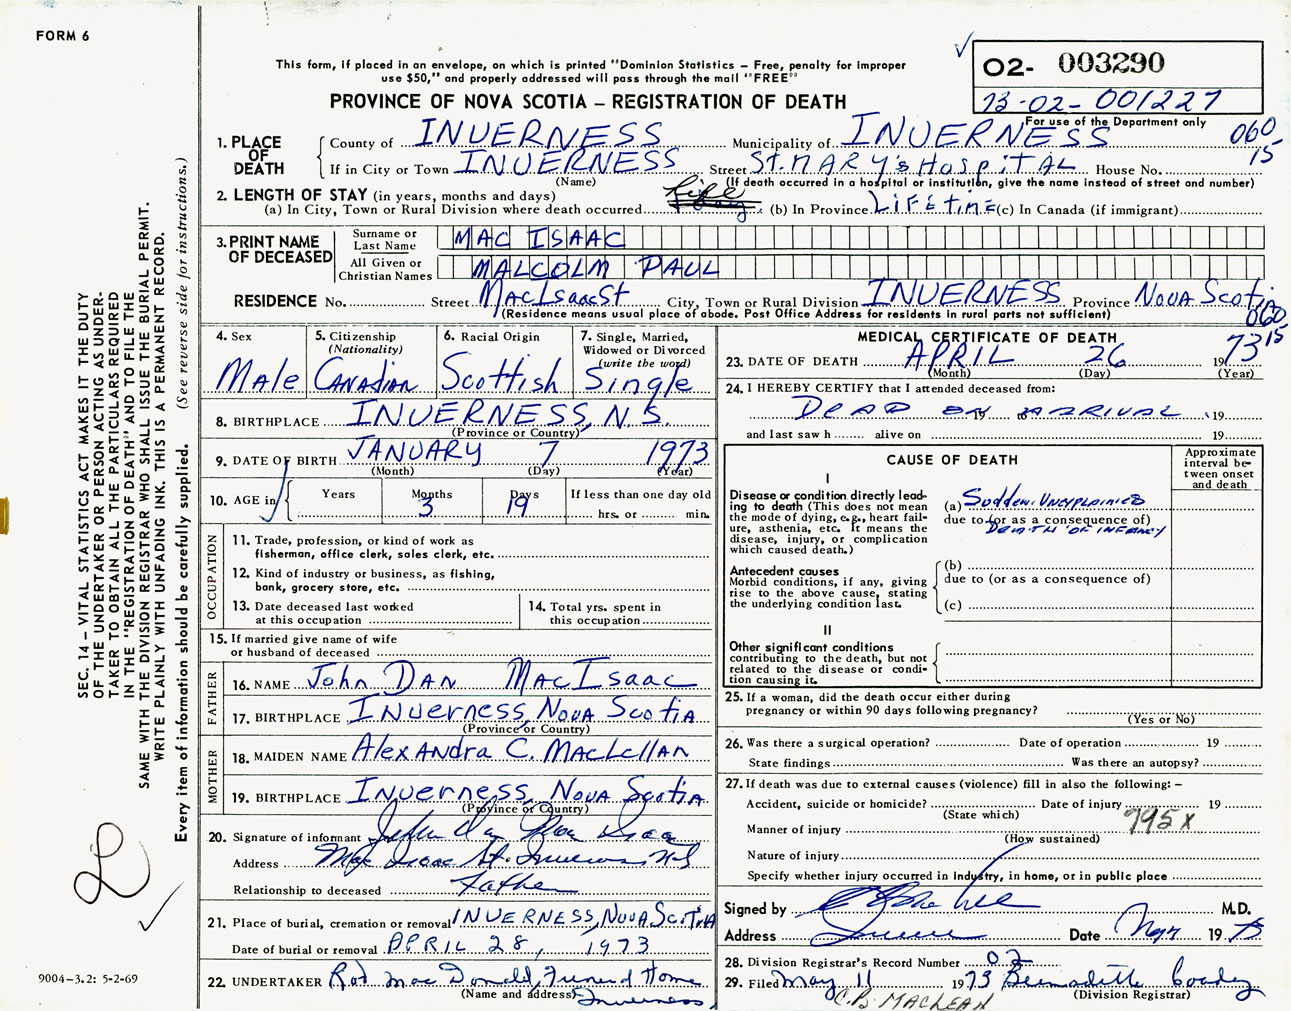 FORM 6
This form, if placed in an envelope, on which is printed "Dominion Statistics – Free, penalty for improper
use $50," and properly addressed will pass through the mail "FREE"
PROVINCE OF NOVA SCOTIA – REGISTRATION OF DEATH
02- 003290
73-02-001227
For use of the Department only
060
15
1. PLACE OF DEATH
County of INVERNESS Municipality of INVERNESS
If in City or Town INVERNESS Street St. MARY's HospITAL House No.
(Name) (If death occurred in a hospital or institution, give the name instead of street and number)
2. LENGTH OF STAY (in years, months and days)
(a) In City, Town or Rural Division where death occurred Life (b) In Province LiFEtimE (c) In Canada (if immigrant)
3. PRINT NAME OF DECEASED
Surname or Last Name MAC ISAAC
All Given or Christian Names MALCOLM PAUL
RESIDENCE No. Street MacIsaac St City, Town or Rural Division INVERNESS Province NOVA Scotia
(Residence means usual place of abode. Post Office Address for residents in rural parts not sufficient)
060
15
4. Sex
Male
5. Citizenship
(Nationality)
CANADIAN
6. Racial Origin
Scottish
7. Single, Married,
Widowed or Divorced
(write the word)
Single
8. BIRTHPLACE INVERNESS, N.S.
(Province or Country)
9. DATE OF BIRTH JANUARY 7 1973
(Month) (Day) (Year)
10. AGE in
Years Months Days If less than one day old
3 19 hrs. or min.
OCCUPATION
11. Trade, profession, or kind of work as
fisherman, office clerk, sales clerk, etc.
12. Kind of industry or business, as fishing,
bank, grocery store, etc.
13. Date deceased last worked
at this occupation
14. Total yrs. spent in
this occupation
15. If married give name of wife
or husband of deceased
FATHER
16. NAME John DAN MacIsaac
17. BIRTHPLACE Inverness, NOVA Scotia
(Province or Country)
MOTHER
18. MAIDEN NAME AlexANdra C. MacLellan
19. BIRTHPLACE Inverness, Nova Scotia
(Province or Country)
20. Signature of informant John Dan Mac Isaac
Address Mac Isaac St. Inverness NS
Relationship to deceased Father
21. Place of burial, cremation or removal INVERNESS, NOVA ScoTIA
Date of burial or removal APRIL 28, 1973
22. UNDERTAKER Rod MacDonald, Funeral Home
(Name and address) Inverness
MEDICAL CERTIFICATE OF DEATH
23. DATE OF DEATH APRIL 26 1973
(Month) (Day) (Year)
24. I HEREBY CERTIFY that I attended deceased from:
DEAD ON ARRIVAL 19
and last saw h alive on 19
CAUSE OF DEATH
Approximate
interval be-
tween onset
and death
I
Disease or condition directly lead-
ing to death (This does not
mean the mode of dying, e.g., heart fail-
ure, asthenia, etc. It means the
disease, injury, or complication
which caused death.)
(a) Sudden UNEXPLAINED
due to (or as a consequence of)
DEATH OF INFANCY
Antecedent causes
Morbid conditions, if any, giving
rise to the above cause, stating
the underlying condition last.
(b)
due to (or as a consequence of)
(c)
II
Other significant conditions
contributing to the death, but not
related to the disease or condi-
tion causing it.
25. If a woman, did the death occur either during
pregnancy or within 90 days following pregnancy?
(Yes or No)
26. Was there a surgical operation? Date of operation 19
State findings Was there an autopsy?
27. If death was due to external causes (violence) fill in also the following: –
Accident, suicide or homicide? Date of injury 19
(State which)
795x
Manner of injury
(How sustained)
Nature of injury
Specify whether injury occurred in industry, in home, or in public place
Signed by M.D.
Address Date 19
28. Division Registrar's Record Number 02
29. Filed May 11 1973 Bernadette Coady
(Division Registrar)
C.B. MACLEAN
SEC. 14 – VITAL STATISTICS ACT MAKES IT THE DUTY
OF THE UNDERTAKER OR PERSON ACTING AS UNDER-
TAKER TO OBTAIN ALL THE PARTICULARS REQUIRED
IN THE "REGISTRATION OF DEATH" AND TO FILE THE
SAME WITH THE DIVISION REGISTRAR WHO SHALL ISSUE THE BURIAL PERMIT.
WRITE PLAINLY WITH UNFADING INK. THIS IS A PERMANENT RECORD.
Every item of information should be carefully supplied. (See reverse side for instructions.)
9004–3.2: 5-2-69